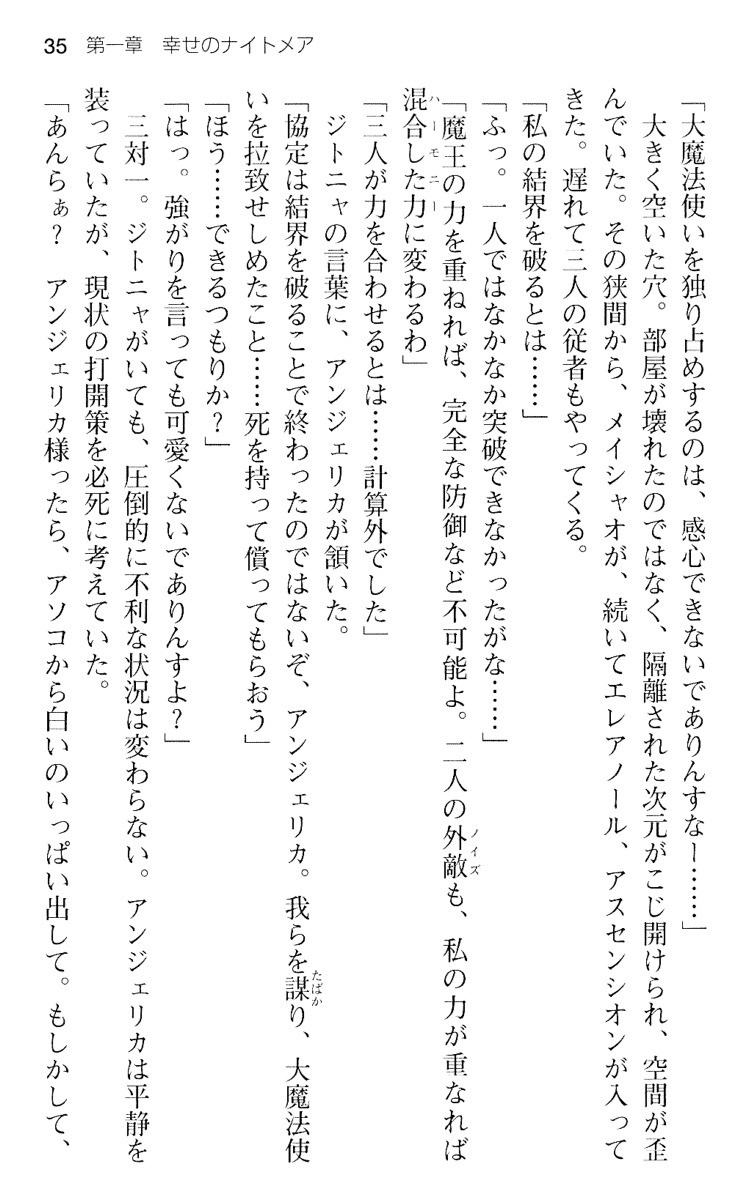 35　第一章　幸せのナイトメア
「大魔法使いを独り占めするのは、感心できないでありんすなー……」
　大きく空いた穴。部屋が壊れたのではなく、隔離された次元がこじ開けられ、空間が歪
んでいた。その狭間から、メイシャオが、続いてエレアノール、アスセンシオンが入って
きた。遅れて三人の従者もやってくる。
「私の結界を破るとは……」
「ふっ。一人ではなかなか突破できなかったがな……」
「魔王の力を重ねれば、完全な防御など不可能よ。二人の外敵ノイズも、私の力が重なれば
混合ハーモニーした力に変わるわ」
「三人が力を合わせるとは……計算外でした」
　ジトニャの言葉に、アンジェリカが頷いた。
「協定は結界を破ることで終わったのではないぞ、アンジェリカ。我らを謀たばかり、大魔法使
いを拉致せしめたこと……死を持って償ってもらおう」
「ほう……できるつもりか？」
「はっ。強がりを言っても可愛くないでありんすよ？」
　三対一。ジトニャがいても、圧倒的に不利な状況は変わらない。アンジェリカは平静を
装っていたが、現状の打開策を必死に考えていた。
「あんらぁ？　アンジェリカ様ったら、アソコから白いのいっぱい出して。もしかして、